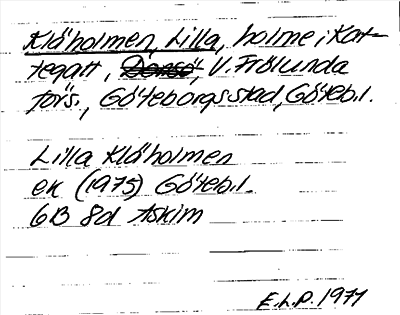 Klåholmen, Lilla, holme i Kat-
tegatt, Donsö, V. Frölunda
förs., Göteborgs stad, Göteb.l.
Lilla Klåholmen
ek (1975) Göteb.l.
6B 8d Askim
E.L.P. 1977